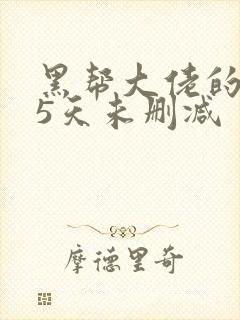 黑帮大佬的
5天未删减
摩德里奇